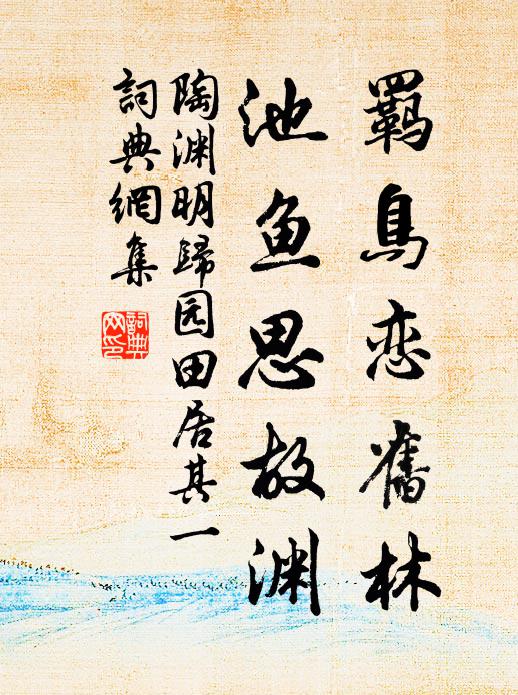 羈鳥恋舊林
池鱼思故渊
陶渊明歸园田居其一
詞典網集
詞典网印